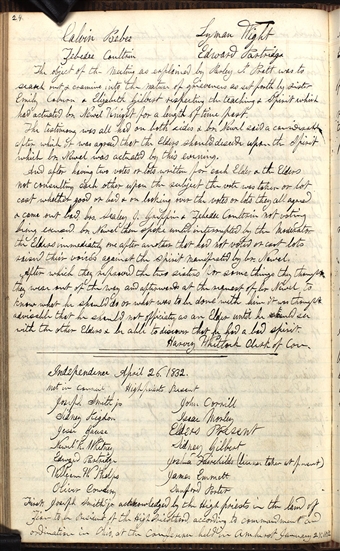 24.
Calvin Beebe Lyman Wight
Zebedee Coultrin Edward Partridge
The object of the Meeting as explained by Parley P. Pratt was to
search out & examine into the nature of grieveances as set forth by Sister
Emily Coburn & Elizabeth Gilbert respecting the teaching & Spirit which
had actuated br. Newel Knight for a length of time past.
The testimony was all had on both sides & br. Newel said a
after which it was agreed that the Elders should descide upon the Spirit
which br. Newel was actuated by this evening.
And after having two votes or lots written for each Elder & the Elders
not consulting each other upon the subject the vote was taken or lot
cast whether good or bad & on looking over the votes or lots they all agreed
& came out bad brs. Selah J. Griffin & Zebedee Coultrin not voting
being br. Newel then spoke until interrupted by the Moderator
the Elders immediately one after another that had not voted or cast lots
raised their voices against the Spirit manifested by br. Newel.
After which they the two sisters for some things they thought
they were out of the way and afterwards at the request of br. Newel, to
know what he should do or what was to be done with him it was thought
adviseable that he should not officiate as an Elder until he
with the other Elders & be able to discover that he had a bad spirit.
Harvey Whitlock Clerk of Con.
Independence April 26, 1832.
Met in Council Highpriests Present
Joseph Smith jr John Corrill
Sidney Rigdon Isaac Morley
Jesse Gause Elders Present
Newel K. Whitney Sidney Gilbert
Edward Partridge Joshua Fairchilds (license taken at present)
William W. Phelps James Emmett
Oliver Cowdery Sanford Porter
First Joseph Smith jr. acknowledged by the High priests in the land of
Zion to be President of the High Priesthood, according to commandment and
ordination in Ohio, at the Conference held in Amherst January 25, 1832